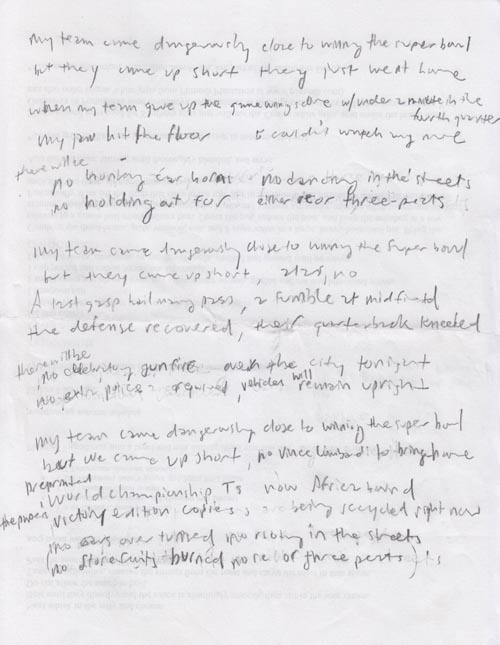 My team came dangerously close to winning the super bowl
but they came up short they just went home
when my team gave up the game wing score w/under 2 minute in the
fourth quarter
My jaw hit the floor I couldn't watch any more
there will be
no honking car horns no dancing in the streets
no holding out for either or three-peats
My team came dangerously close to winning the Super bowl
but they came up short, alas, no
A last gasp hail mary pass, a fumble at midfield
the defense recovered, their quarterback kneeled
there will be
no celebratory gunfire over the city tonight
no extra police required, vehicles will remain upright
My team came dangerously close to winning the super bowl
but we came up short, no vince lombardi to bring home
preprinted
World championship Ts now Africa bound
the papers victory edition copies are being recycled right now
no cars over turned no rioting in the streets
no burned no or three peats